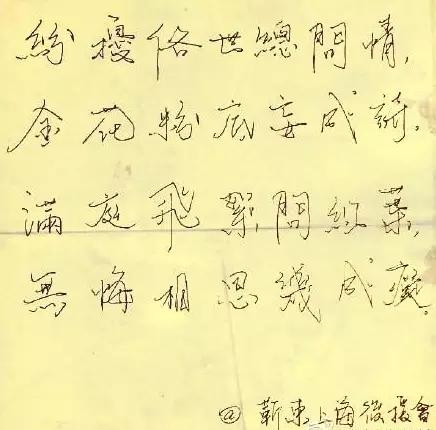 紛擾俗世總間情,
金花粉底妄成詩.
滿庭飛絮間紛葉,
無悔相思幾成癡.
@ 靳東上海後援會